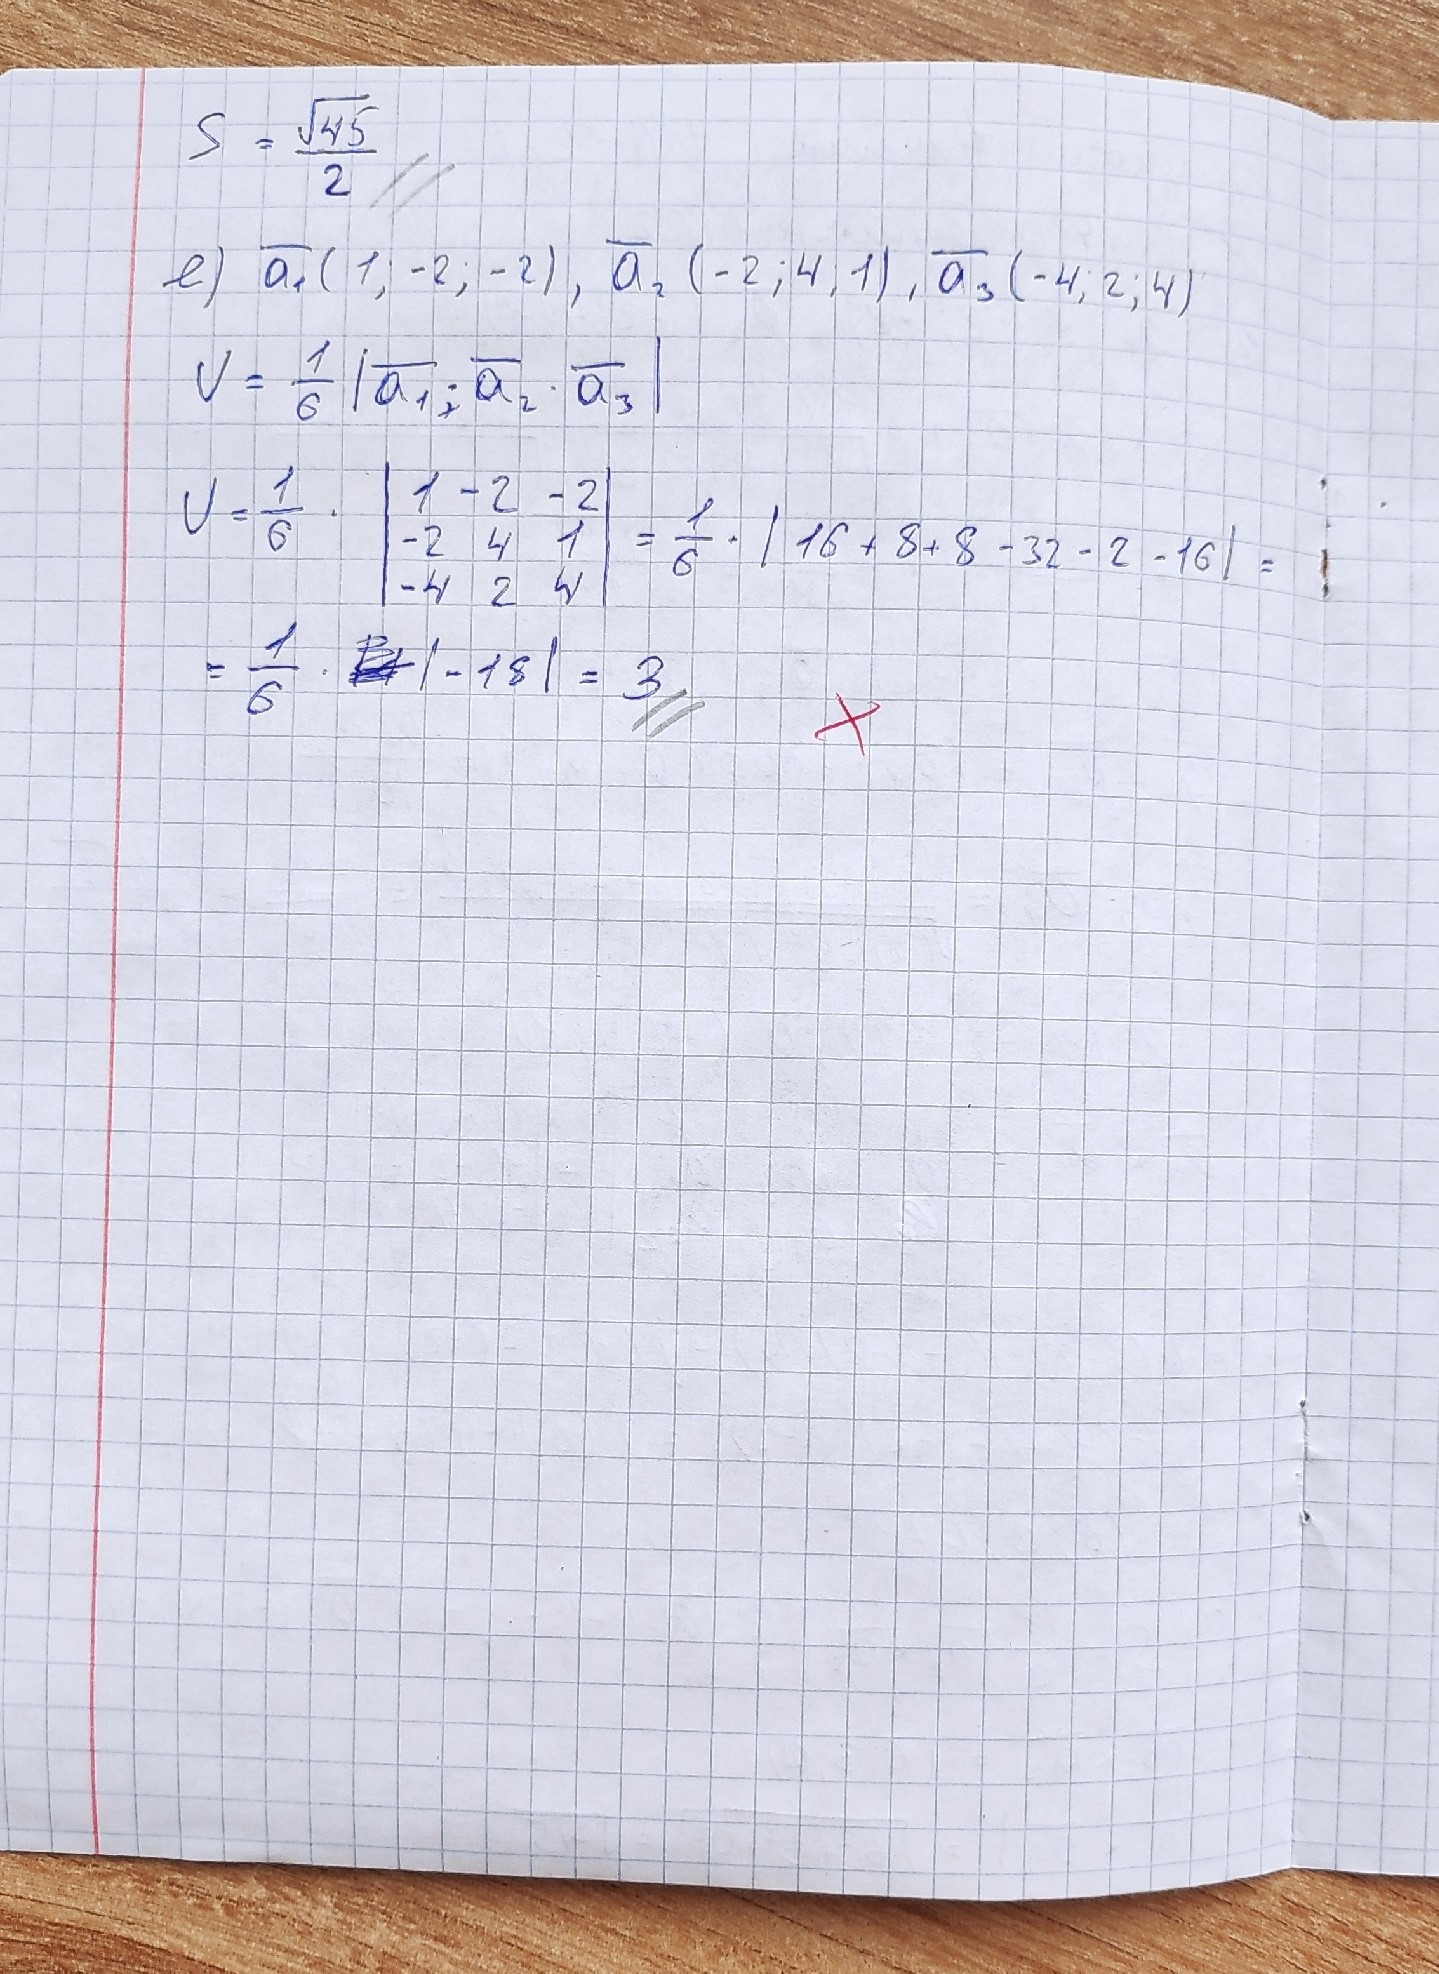 S = √45/2
е) a̅₁(1; -2; -2), a̅₂(-2; 4; 1), a̅₃(-4; 2; 4)
V = 1/6 |a̅₁; a̅₂ · a̅₃|
V = 1/6 · |1 -2 -2
-2 4 1
-4 2 4| = 1/6 · |16 + 8 + 8 - 32 - 2 - 16| =
= 1/6 · |-18| = 3